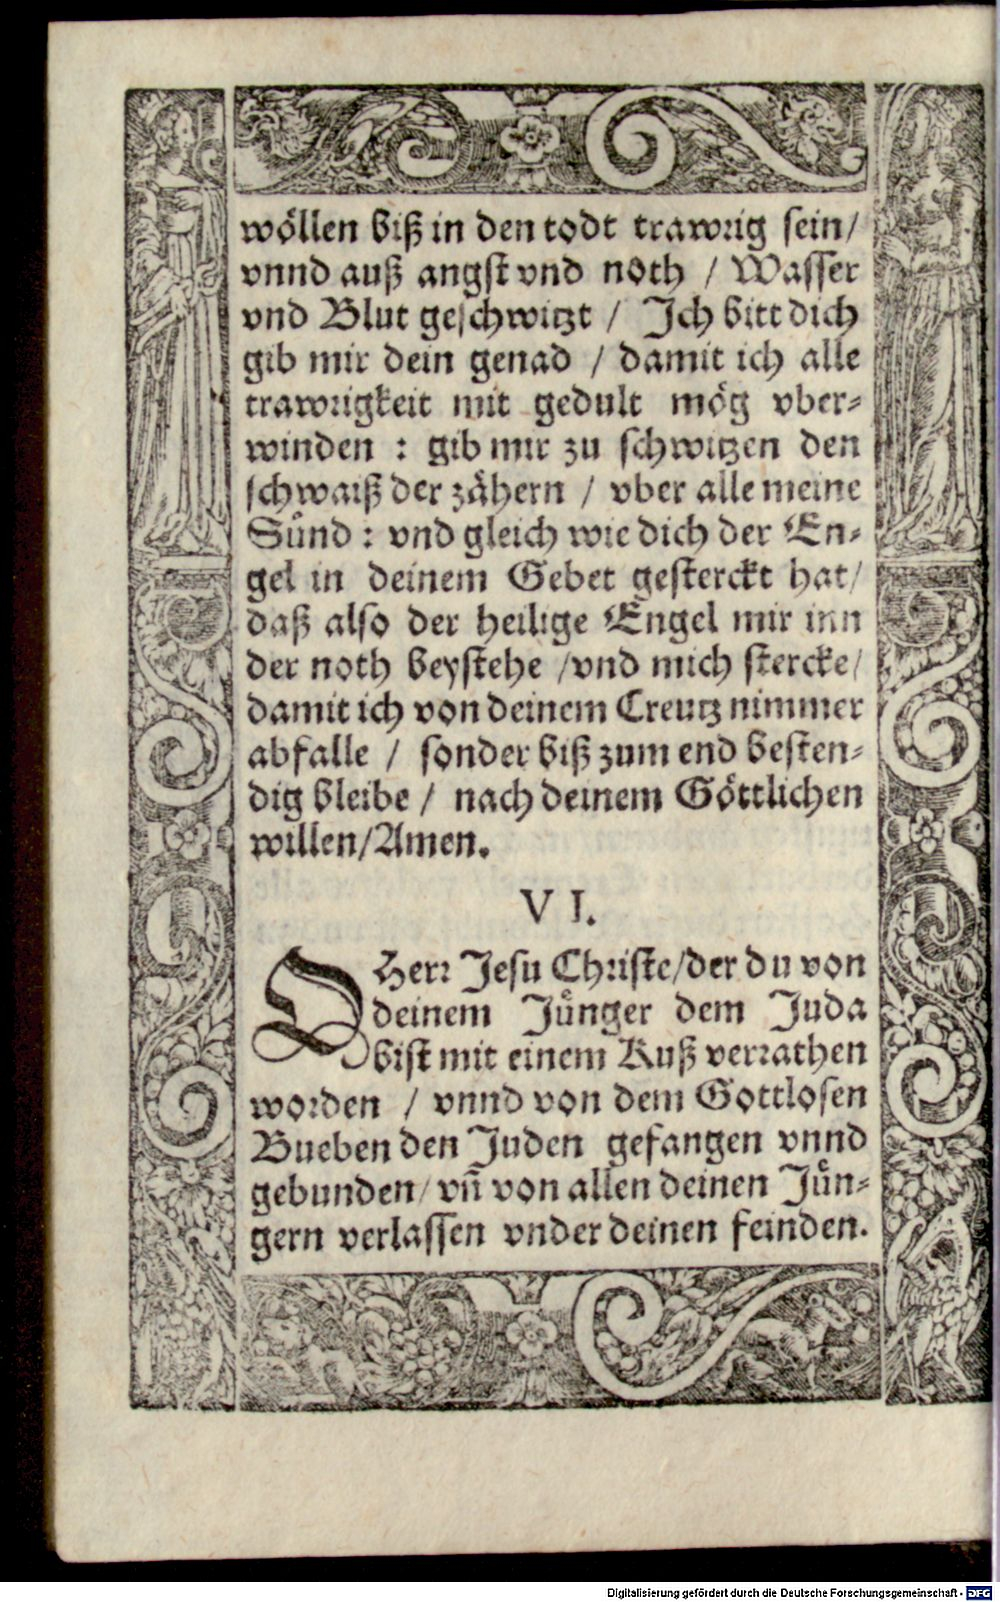 wöllen biß in den todt trawrig sein/
vnnd auß angst vnd noth / Wasser
vnd Blut geschwitzt / Ich bitt dich
gib mir dein genad / damit ich alle
trawrigkeit mit gedult mög vber-
winden : gib mir zu schwitzen den
schwaiß der zähern / vber alle meine
Sünd : vnd gleich wie dich der En-
gel in deinem Gebet gesterckt hat/
daß also der heilige Engel mir inn
der noth beystehe /vnd mich stercke/
damit ich von deinem Creutz nimmer
abfalle / sonder biß zum end besten-
dig bleibe / nach deinem Göttlichen
willen/Amen.
VI.
O Herr Jesu Christe/der du von
deinem Jünger dem Juda
bist mit einem Kuß verrathen
worden / vnnd von dem Gottlosen
Bueben den Juden gefangen vnnd
gebunden/ vn̄ von allen deinen Jün-
gern verlassen vnder deinen feinden.
Digitalisierung gefördert durch die Deutsche Forschungsgemeinschaft - DFG